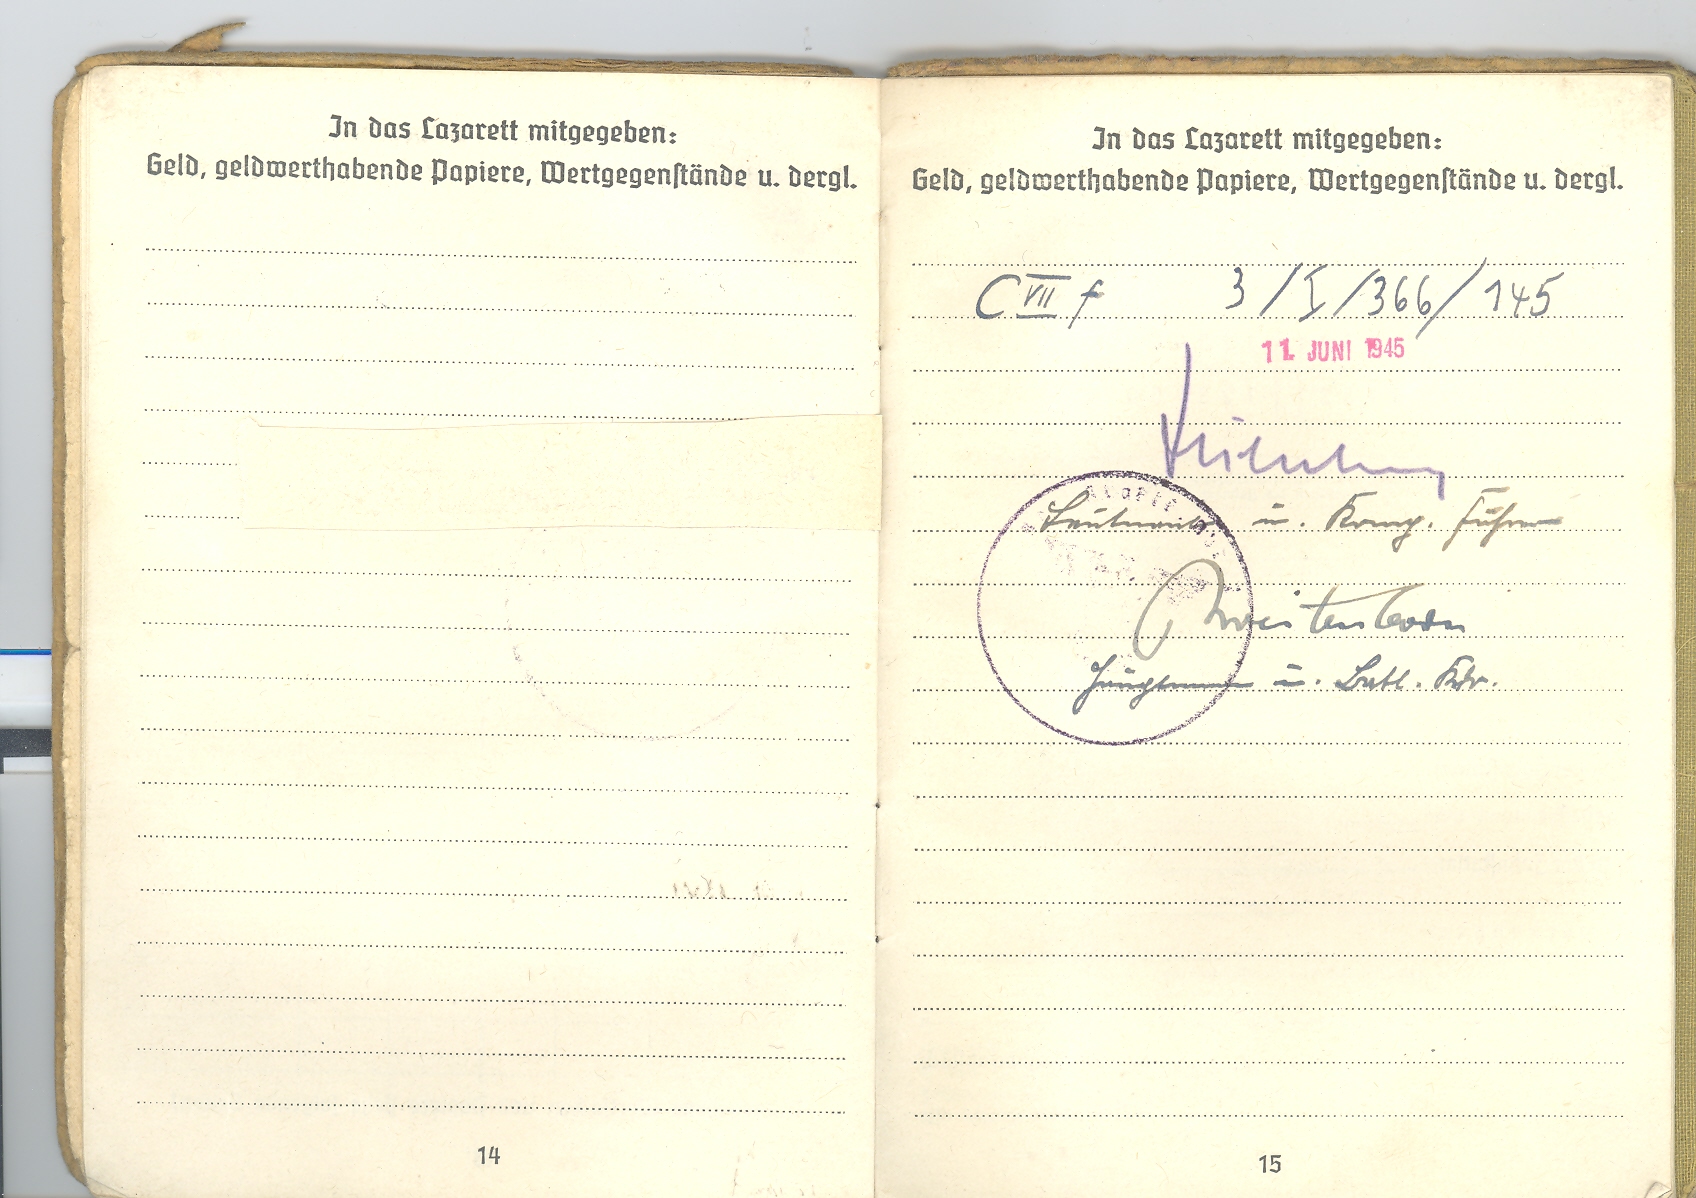 In das Lazarett mitgegeben:
Geld, geldwerthabende Papiere, Wertgegenſtände u. dergl.
14
In das Lazarett mitgegeben:
Geld, geldwerthabende Papiere, Wertgegenſtände u. dergl.
C VII f 3/I/366/145
11. JUNI 1945
Leutnant u. Komp. Führer
u. Batl. Kdr.
15